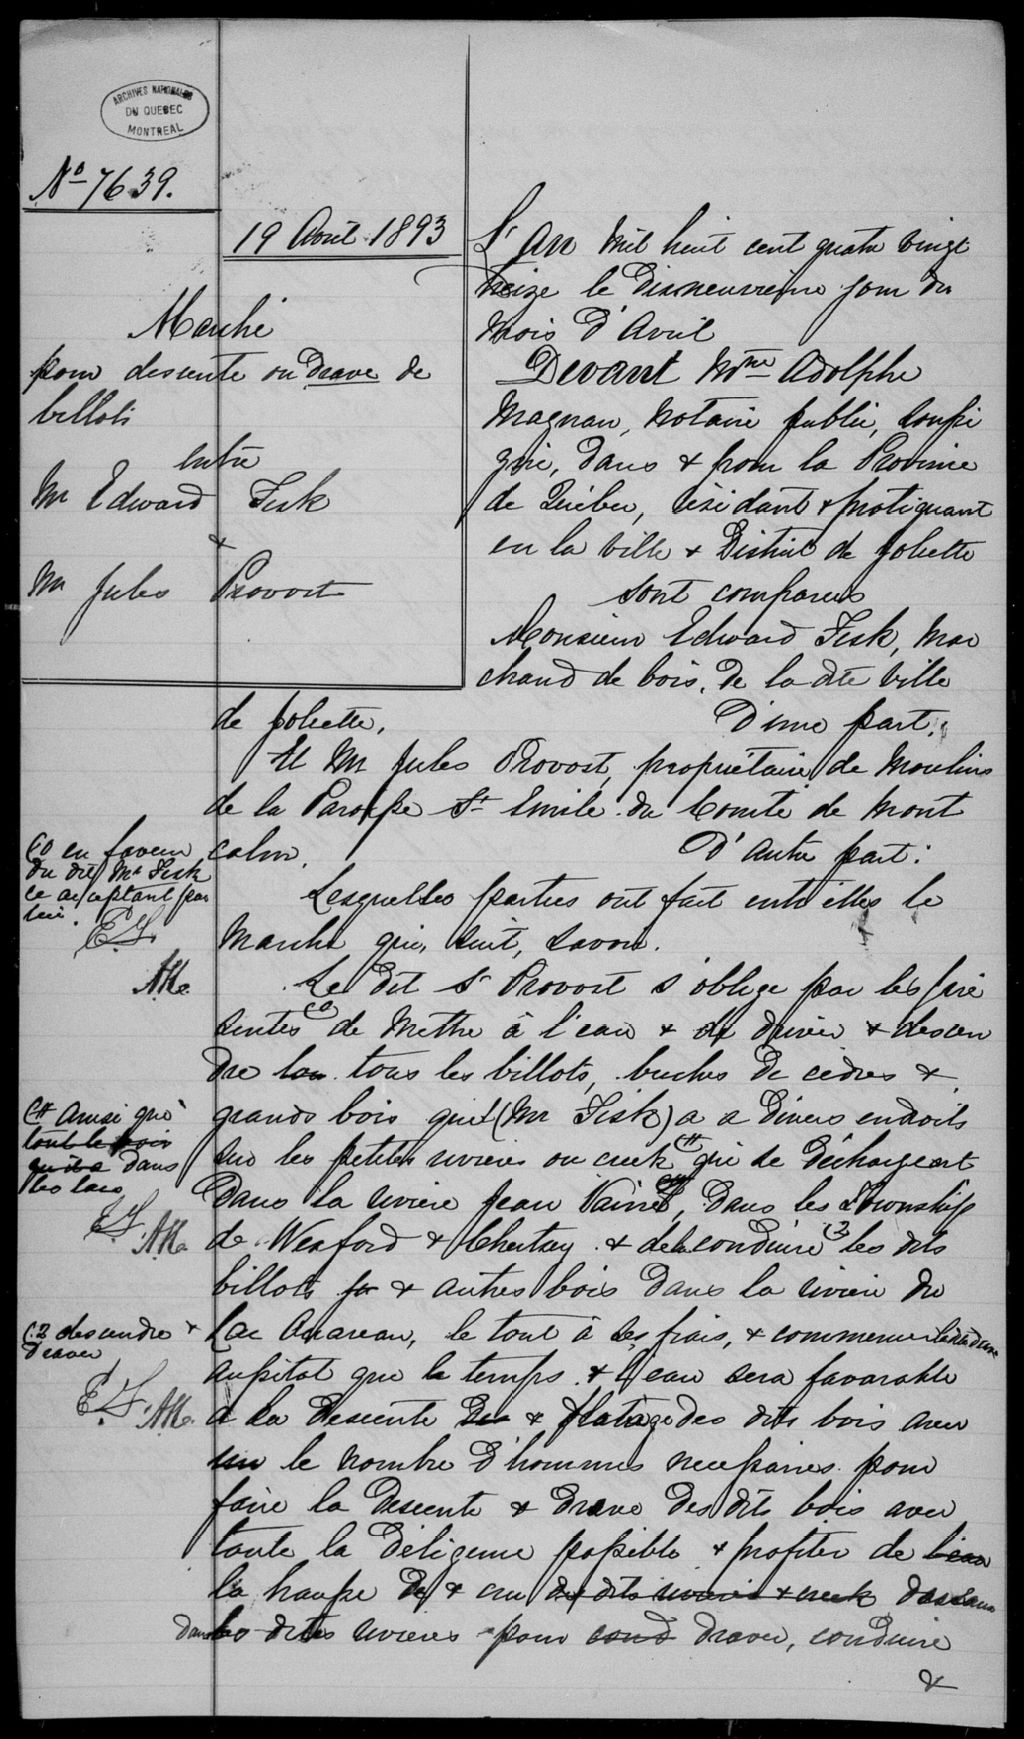 ARCHIVES NATIONALES
DU QUEBEC
MONTREAL
No 7639.
19 Avril 1893
Marché
pour descente ou drave de
billots
entre
Mr Edward Fisk
&
Mr Jules Provost
L'An mil huit cent quatre vingt
treize le dixneuvieme jour du
mois d'Avril
Devant Mtre Adolphe
Magnan, Notaire public, soussi
gné, dans & pour la Province
de Québec, résidant & pratiquant
en la ville & District de Joliette
sont comparus
Monsieur Edward Fisk, Mar
chand de bois, de la dite ville
de Joliette, D'une part;
Et Mr Jules Provost, propriétaire de Moulins
de la Paroisse St Emile du Comté de Mont
calm. D'autre part:
Lesquelles parties ont fait entr'elles le
Marché qui, suit, savoir.
Le dit Sr Provost s'oblige par les pré
sentes de Mettre à l'eau & de driver & descen
dre tous les billots, buches de cèdres &
grands bois qu'il (Mr Fisk) a a divers endroits
sur les petites rivieres ou creek qui se déchargent
dans la riviere Jean Vainé, dans les Township
de Wexford & Chertsey & de conduire les dits
billots & autres bois dans la riviere du
Lac Ouareau, le tout à ses frais, & commencer la dite drave
aussitot que le temps & l'eau sera favorable
a la descente & flotage des dits bois avec
un le nombre d'hommes necessaires pour
faire la descente & drave des dits bois avec
toute la diligence possible & profiter de l'eau
la hausse de & cru des dits rivieres & creek
dans les dites rivieres pour cond draver, conduire
&
(O en faveur
du dit Mr Fisk
ce acceptant par
lui.
E.F.
AM.
(H Ainsi que
tout le bois
qu'il a dans
les lacs
E.F.
AM.
(2 descendre &
draver
E.F. AM.